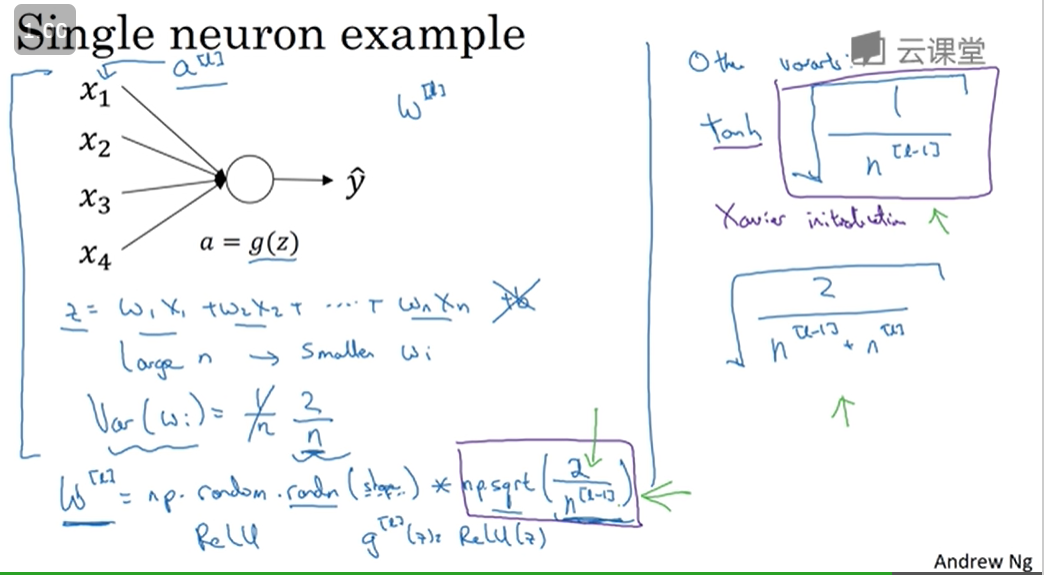 1.00
Single neuron example
云课堂
a^[l]
w^[l]
x₁
x₂
x₃
x₄
ŷ
a = g(z)
z = w₁x₁ + w₂x₂ + ..... + wₙxₙ +b
Large n → Smaller wᵢ
Var(wᵢ) = 1/n 2/n
w^[l] = np.random.randn(shape) * np.sqrt(2/n^[l-1])
ReLU g^[l](z) = ReLU(z)
Other variants:
tanh √(1/n^[l-1])
Xavier initialization
√(2/(n^[l-1] + n^[l]))
Andrew Ng